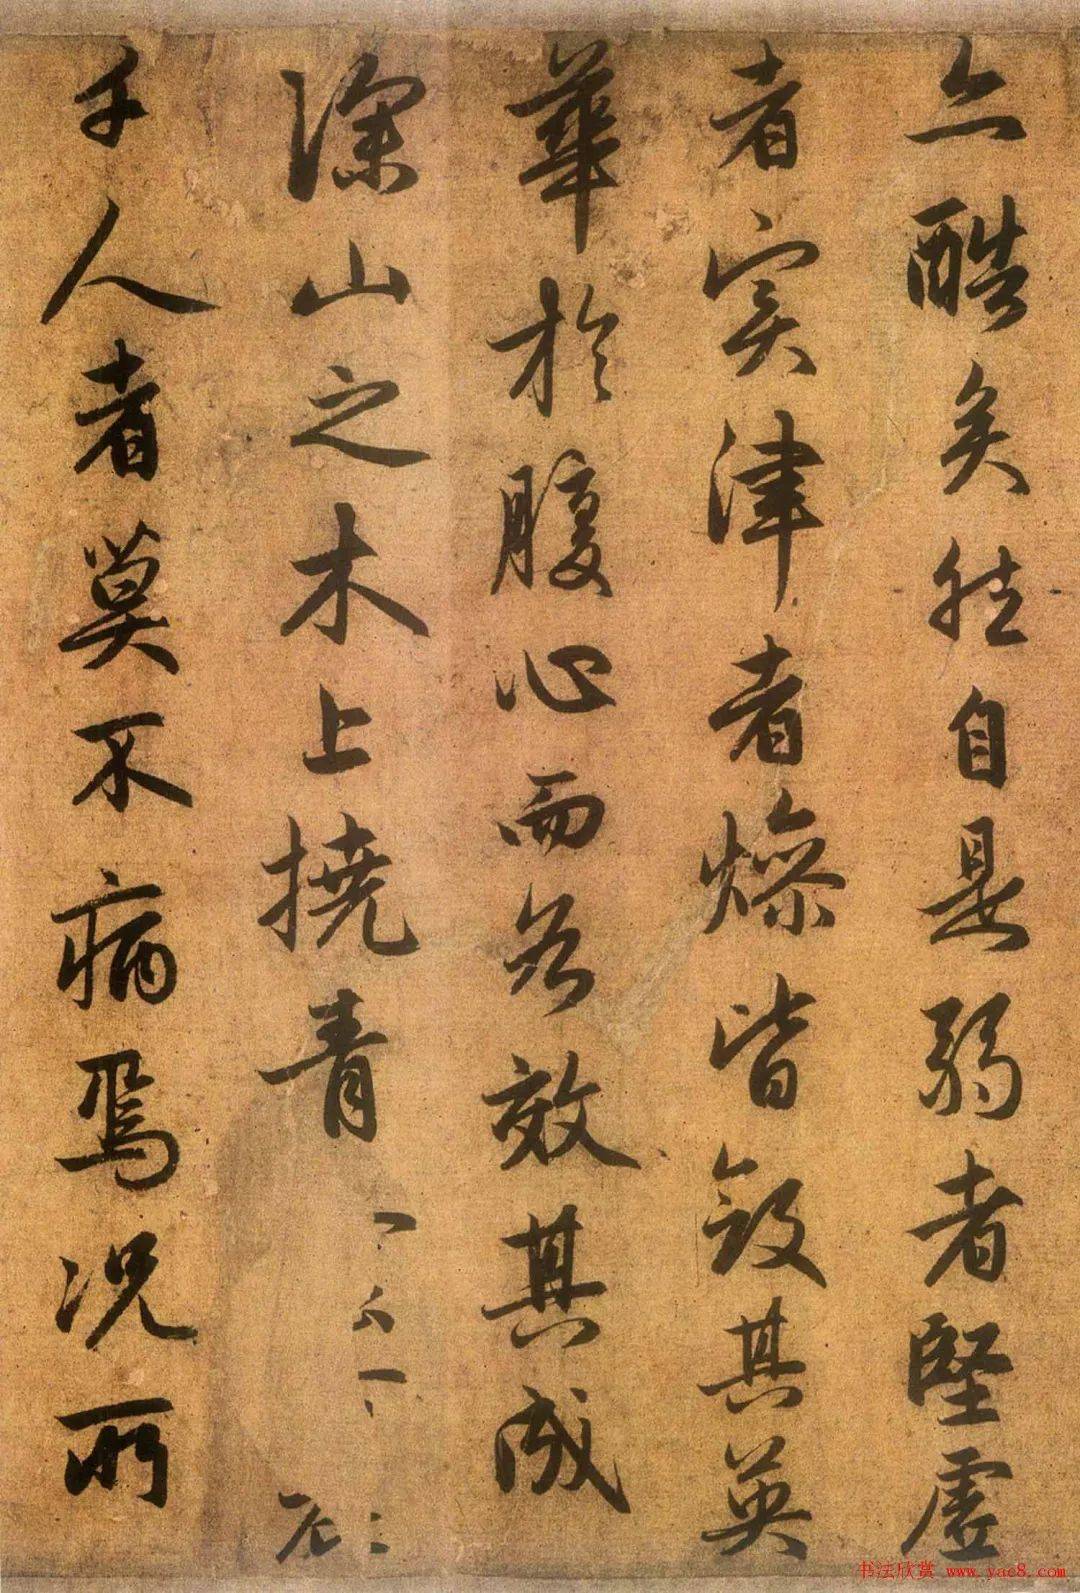 亦酷矣然自是弱者堅虛
者实津者燥皆敛其英
華於腹心而各效其成
深山之木上撓青
千人者莫不病焉況所
书法欣赏 www.yac8.com